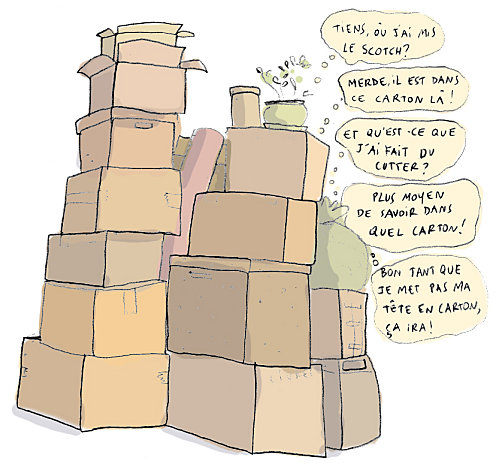 TIENS, OÙ J'AI MIS
LE SCOTCH?
MERDE, IL EST DANS
CE CARTON LÀ!
ET QU'EST-CE QUE
J'AI FAIT DU
CUTTER?
PLUS MOYEN
DE SAVOIR DANS
QUEL CARTON!
BON TANT QUE
JE MET PAS MA
TÊTE EN CARTON,
ÇA IRA!